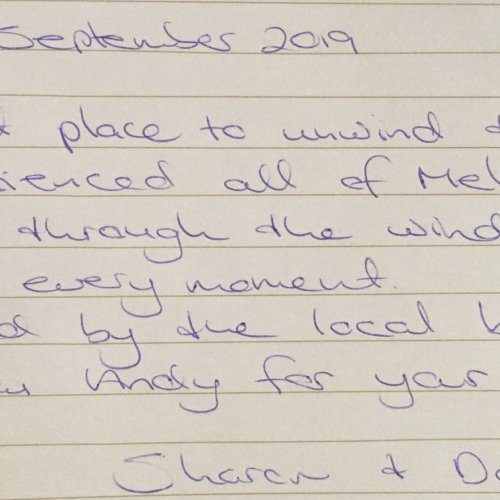 September 2019
place to unwind
ienced all of Mel
through the wind
every moment.
by the local
Andy for your
Sharon + Do